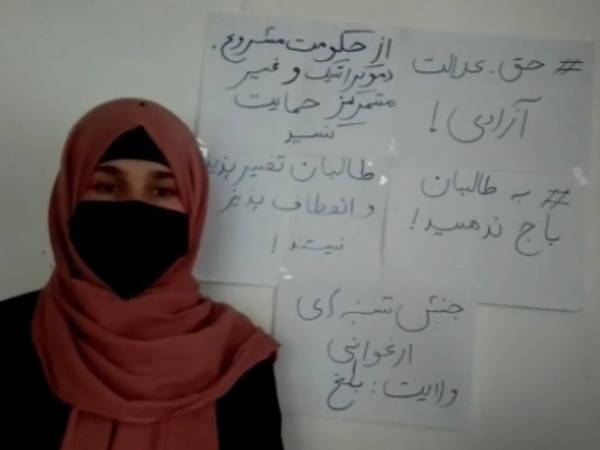 از حکومت مشروع،
دموکراتیک و غیر
متمرکز حمایت
کنید
# حق. عدالت
آزادی!
طالبان تغییر پذیر
و انعطاف پذیر
نیستند!
# به طالبان
باج ندهید!
جنبش
ارغوانی
ولایت: بلخ